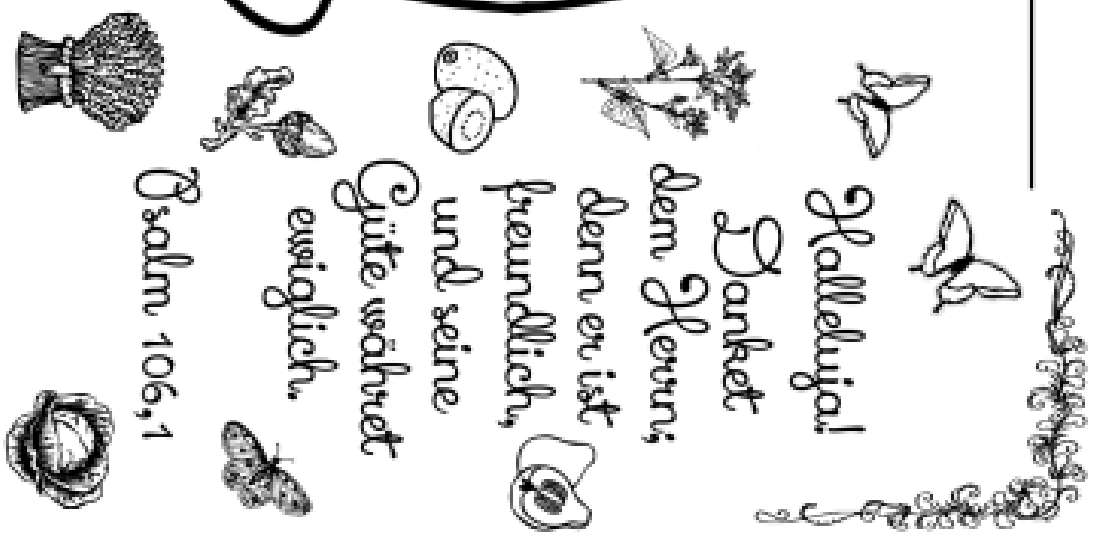 Halleluja!
Danket
dem Herrn;
denn er ist
freundlich,
und seine
Güte währet
ewiglich.
Psalm 106,1